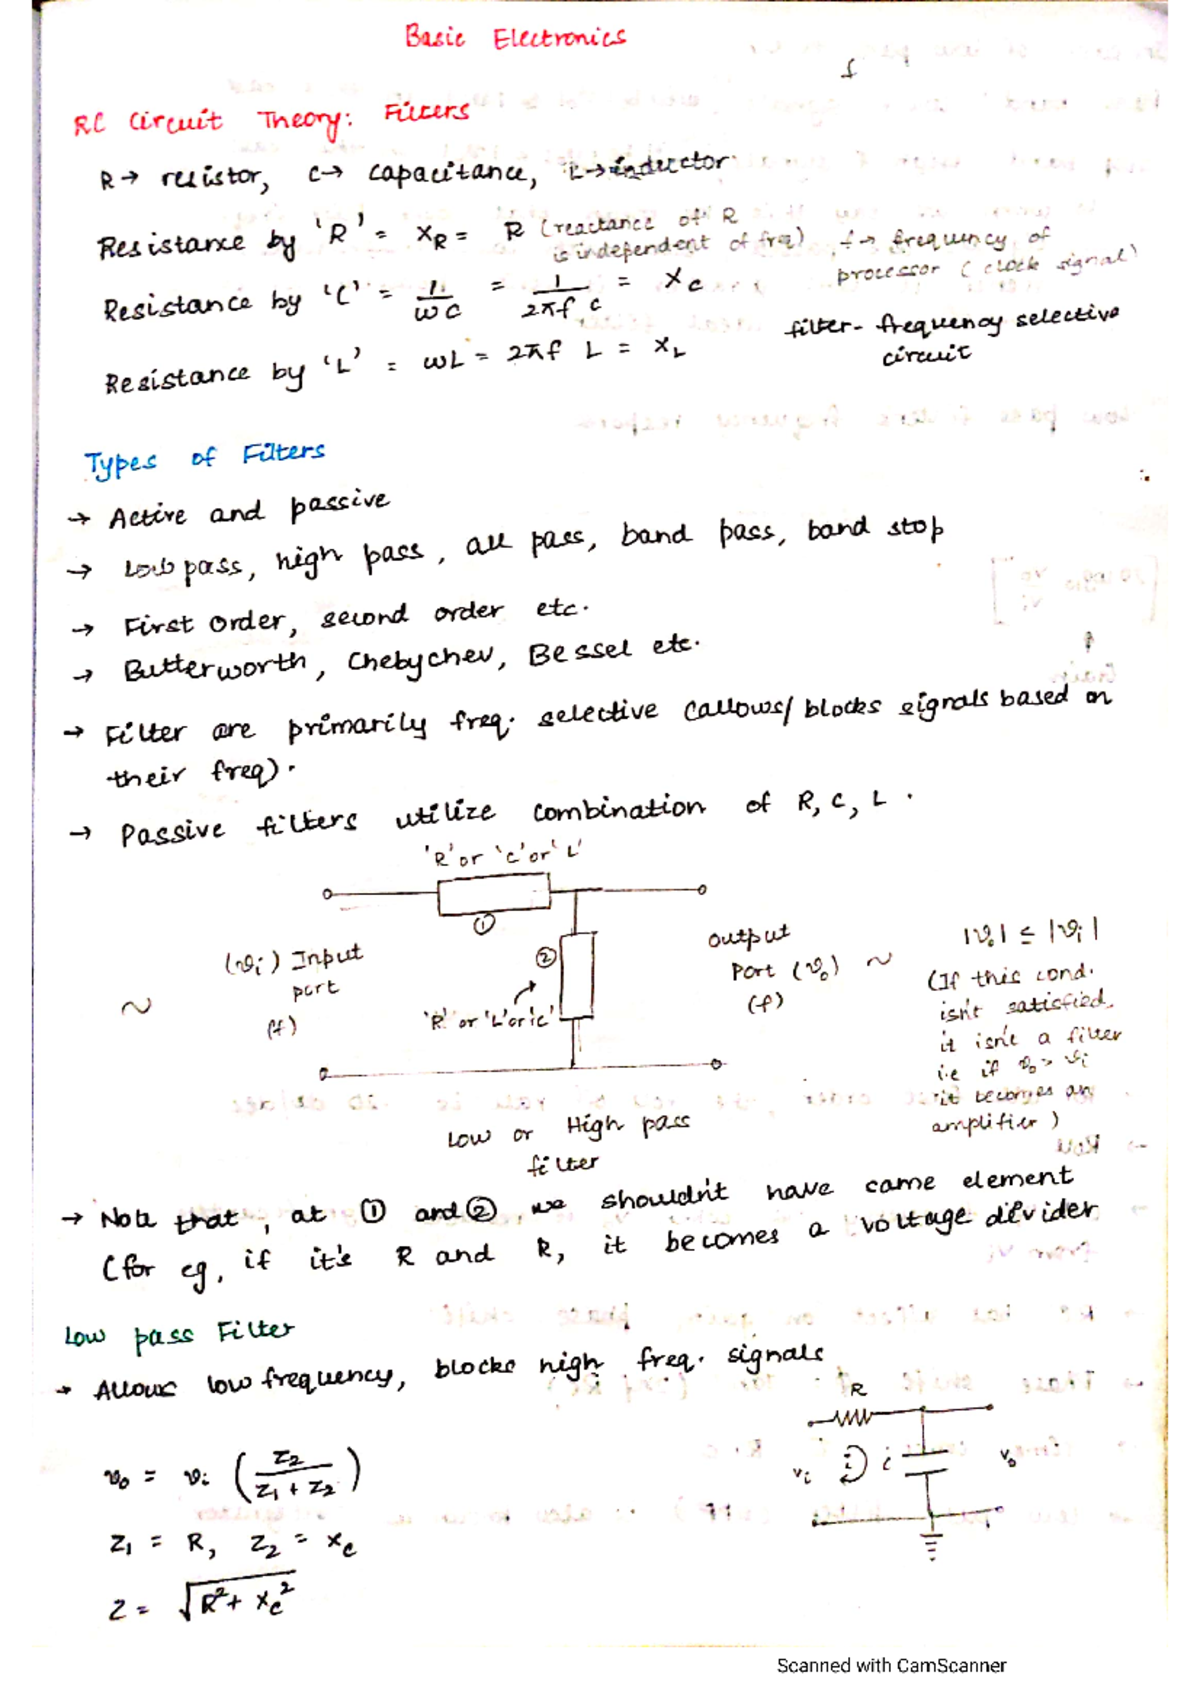 Basic Electronics
RC Circuit Theory: Filters
R → resistor, C → capacitance, L → inductor
Resistance by 'R' = XR = R (reactance of R is independent of frq)
f → frequency of processor (clock signal)
Resistance by 'C' = 1/ωC = 1/2πf C = Xc
filter - frequency selective circuit
Resistance by 'L' = ωL = 2πf L = XL
Types of Filters
→ Active and passive
→ Low pass, high pass, all pass, band pass, band stop
→ First order, second order etc.
→ Butterworth, Chebychev, Bessel etc.
→ Filter are primarily freq. selective (allows/blocks signals based on
their freq).
→ Passive filters utilize combination of R, C, L.
'R' or 'C' or 'L'
①
(vi) Input port (f)
~
②
'R' or 'L' or 'C'
Output Port (vo) (f)
~
|vo| ≤ |vi|
(If this cond.
isn't satisfied,
it isn't a filter
i.e if vo > vi
it becomes an
amplifier)
Low or High pass
filter
→ Note that, at ① and ② we shouldn't have same element
(for eg, if it's R and R, it becomes a voltage divider
Low pass Filter
→ Allows low frequency, blocks high freq. signals
R
vi
i
c
vo
vo = vi (Z2 / Z1 + Z2)
Z1 = R, Z2 = Xc
Z = √R² + Xc²
Scanned with CamScanner